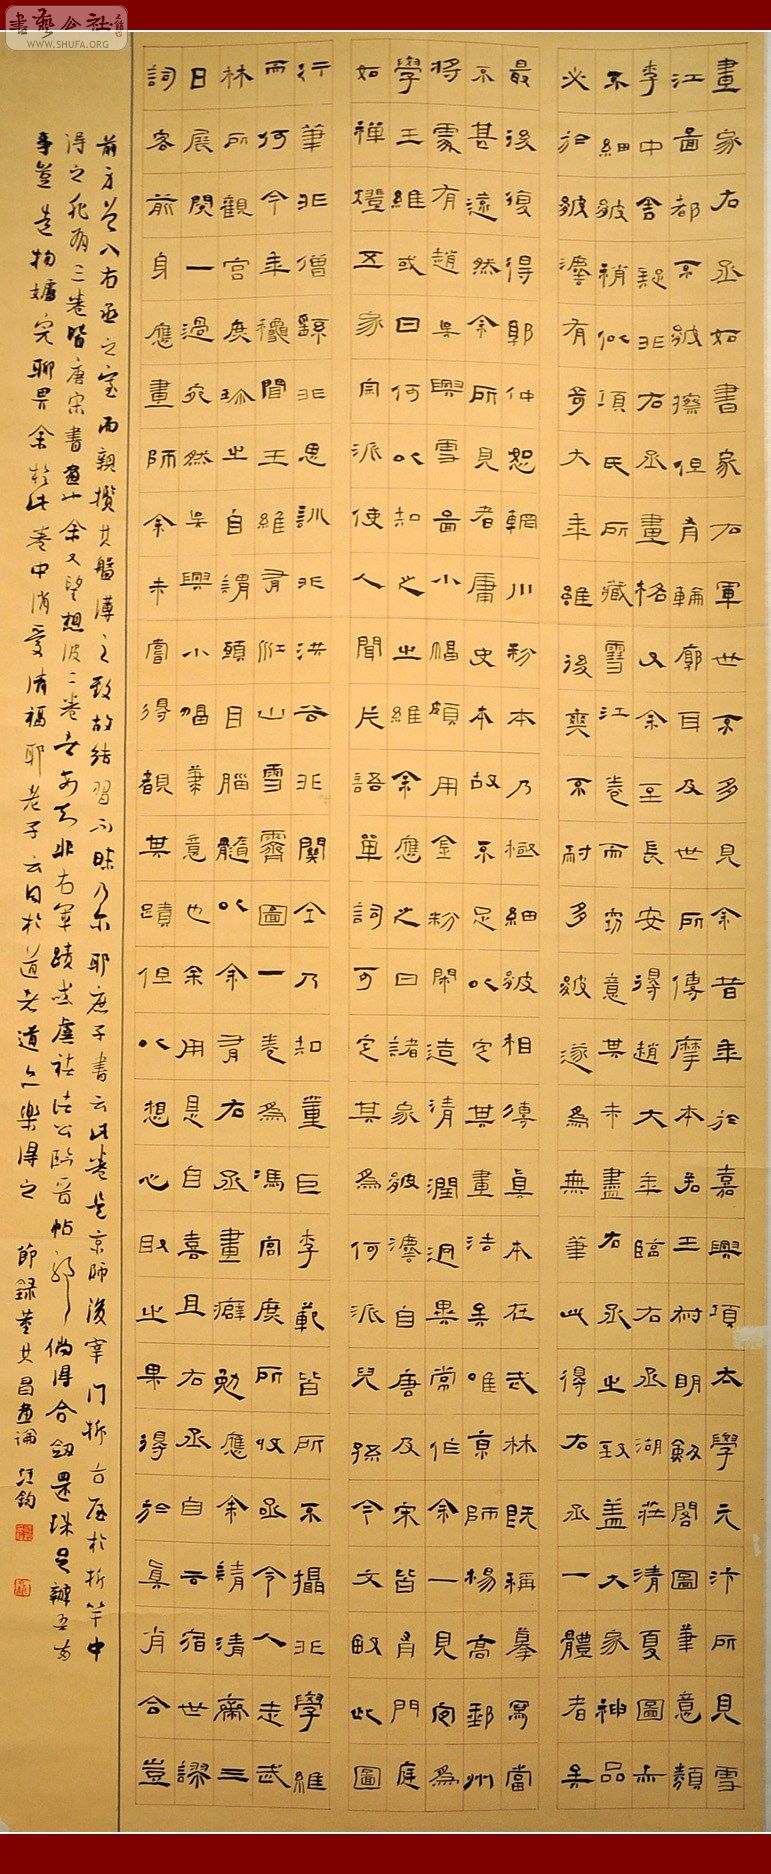 書藝公社
WWW.SHUFA.ORG
畫家右丞如書家右軍世不多見余昔年於嘉興項太學元汴所見雪
江圖都不皴擦但有輪廓耳及世所傳摩本若王叔明劍閣圖筆意類
李中舍疑非右丞畫格又余至長安得趙大年臨右丞湖莊清夏圖亦
不細皴稍似項氏所藏雪江卷而竊意其未盡右丞之致蓋大家神品
必於皴灋有奇大年雖後爽不耐多皴遂為無筆此得右丞一體者矣
最後復得郭仲恕輞川粉本乃極細皴相傳真本在武林既稱摹寫當
不甚遠然余所見者庸史本故不足以定其畫法矣唯京師楊高郵州
將處有趙吳興雪圖小幅頗用金粉閒遠清潤迥異常作余一見定為
學王維或曰何以知之之維余應之曰諸家皴灋自唐及宋皆有門庭
如禪燈五家宗派使人聞片語單詞可定其為何派兒孫今文敏此圖
行筆非僧繇非思訓非洪谷非關仝乃知董巨李范皆所不攝非學維
而何今年穐聞王維有江山雪霽圖一卷為馮宮庶所收亟令人走武
林所觀宮庶珍之自謂頭目腦髓以余有右丞畫癖勉應余請清齋三
日展閱一過宛然吳興小幅筆意也余用是自喜且右丞自云宿世謬
詞客前身應畫師余未嘗得觀其蹟但以想心取之果得於真肖合豈
前身曾入右丞之室而親攬其盤礴之致故結習不昧乃爾耶庶子書云此卷是京師後宰門拆古屋於折竿中
得之凡有三卷皆唐宋書畫也余又望想彼二卷者安知非右軍蹟或虞褚諸公臨晉帖耶倘得合劍還珠足辦吾兩
事豈造物妒完聊畀余於此卷中消受清福耶老子云同於道者道亦樂得之 節錄董其昌畫論 汪鈞